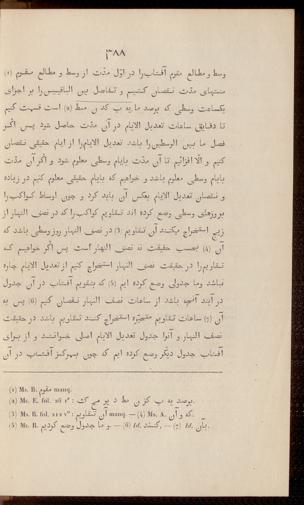 ٣٨٨
وسط و مطالع مقوم آفتابرا در اوّل مدّت از وسط و مطالع مقوم (١)
منتهای مدّت نقصان کنیم و تفاضل بین الباقیین را بر اجزای
یکساعت وسطی که بوصد ما یه ب کد ن مط (٢) است قسمت کنیم
تا دقایق ساعات تعدیل الایام در آن مدّت حاصل شود پس اکر
فصل ما بین الوسطین را باشد تعدیل الایامرا از ایام حقیقی نقصان
کنیم و الّا افزائیم تا آن مدّت بایام وسطی معلوم شود و اکر آن مدّت
بایام وسطی معلوم باشد و خواهیم که بایام حقیقی معلوم کنیم در زیاده
و نقصان تعدیل الایام بعکس آن باید کرد و چون اوساط کواکبرا
بروزهای وسطی وضع کرده اند تقاویم کواکب را که در نصف النهار از
زیج استخراج میکنند آن تقاویم (٣) در نصف النهار روز وسطی باشد که
آن (٤) بحسب حقیقت نه نصف النهار است پس اکر خواهیم که
تقاویمرا در حقیقت نصف النهار استخراج کنیم از تعدیل الایام چاره
نباشد وما جدولی وضع کرده ایم (٥) که بتقویم آفتاب در آن جدول
در آیند آنچه باشد از ساعات نصف النهار نقصان کنیم (٦) پس به
آن (٧) ساعات تقاویم متحیّره استخراج کنند تقاویم باشد در حقیقت
نصف النهار و آنرا جدول تعدیل الایام اصلی خوانند و از برای
آفتاب جدول دیکر وضع کرده ایم که چون بمرکز آفتاب در آن
(١) Ms. B. مقوم manq.
(٢) Ms. E. fol.
(٣) Ms. B. fol. آن تقاویم manq. — (٤) Ms. A. که و آن.
(٥) Ms. B. و ما جدول وضع کردیم. — (٦) Id. کنند. — (٧) Id. بآن.